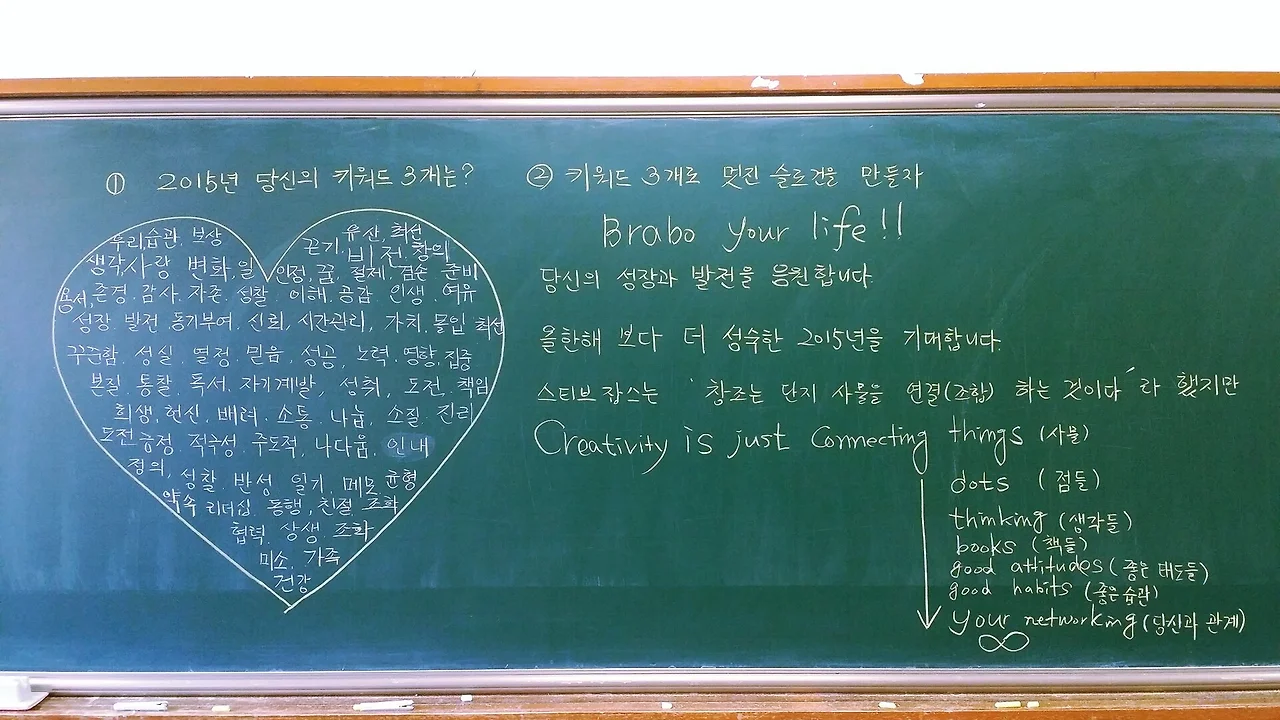 ① 2015년 당신의 키워드 3개는?
우리습관, 보상
유산, 최선
끈기, 비전, 창의
생각, 사랑, 변화, 일, 인정, 꿈, 절제, 겸손, 준비
용서, 존경, 감사, 자존, 성찰, 이해, 공감, 인생, 여유
성장, 발전, 동기부여, 신뢰, 시간관리, 가치, 몰입, 최선
꾸준함, 성실, 열정, 믿음, 성공, 노력, 영향, 집중
본질, 통찰, 독서, 자기계발, 성취, 도전, 책임
희생, 헌신, 배려, 소통, 나눔, 소질, 진리
도전, 긍정, 적극성, 주도적, 나다움, 인내
정의, 성찰, 반성, 일기, 메모, 균형
약속, 리더십, 동행, 친절, 조화
협력, 상생, 조화
미소, 가족
건강
② 키워드 3개로 멋진 슬로건을 만들자
Brabo your life!!
당신의 성장과 발전을 응원합니다.
올한해 보다 더 성숙한 2015년을 기대합니다.
스티브잡스는 '창조는 단지 사물을 연결(조합) 하는 것이다' 라 했지만
Creativity is just connecting things (사물)
dots (점들)
thinking (생각들)
books (책들)
good attitudes (좋은 태도들)
good habits (좋은 습관)
your networking (당신과 관계)
∞